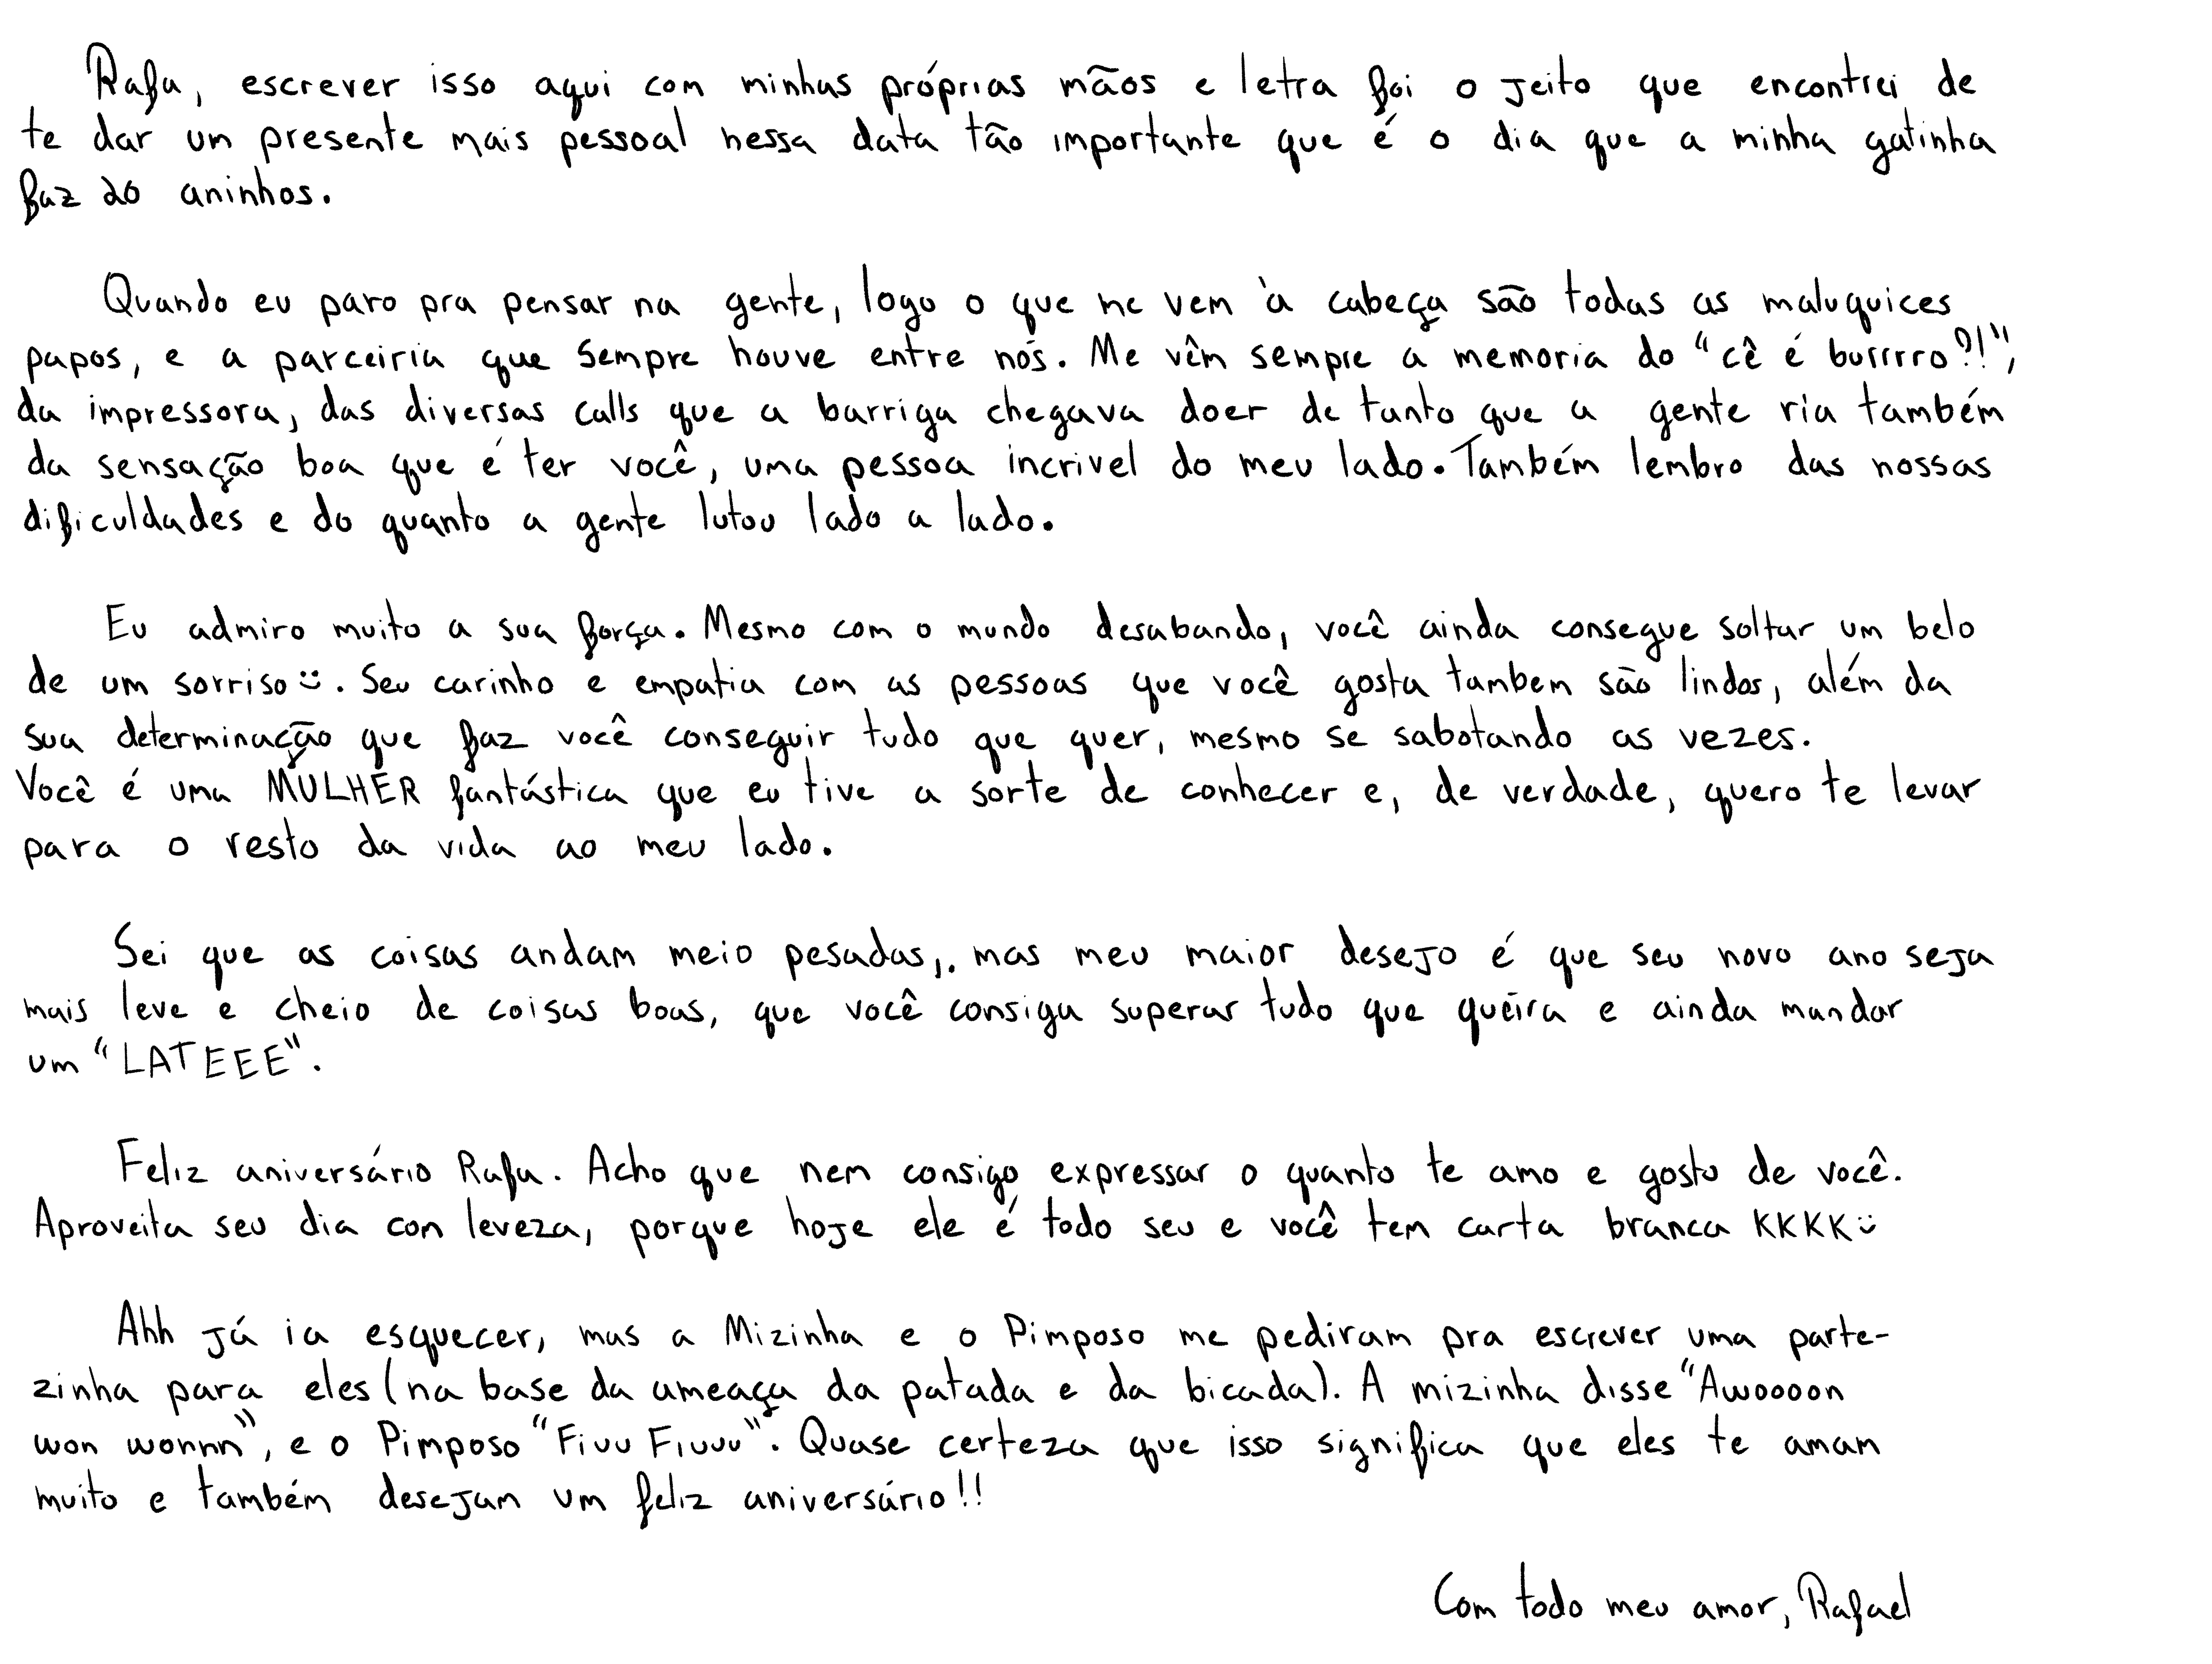 Rafa, escrever isso aqui com minhas próprias mãos e letra foi o jeito que encontrei de
te dar um presente mais pessoal nessa data tão importante que é o dia que a minha gatinha
faz 20 aninhos.
Quando eu paro pra pensar na gente, logo o que me vem à cabeça são todas as maluquices
papos, e a parceiria que sempre houve entre nós. Me vêm sempre a memoria do "cê é burrrro?!",
da impressora, das diversas calls que a barriga chegava doer de tanto que a gente ria também
da sensação boa que é ter você, uma pessoa incrivel do meu lado. Também lembro das nossas
dificuldades e do quanto a gente lutou lado a lado.
Eu admiro muito a sua força. Mesmo com o mundo desabando, você ainda consegue soltar um belo
de um sorriso :). Seu carinho e empatia com as pessoas que você gosta tambem são lindos, além da
sua determinação que faz você conseguir tudo que quer, mesmo se sabotando as vezes.
Você é uma MULHER fantástica que eu tive a sorte de conhecer e, de verdade, quero te levar
para o resto da vida ao meu lado.
Sei que as coisas andam meio pesadas,. mas meu maior desejo é que seu novo ano seja
mais leve e cheio de coisas boas, que você consiga superar tudo que queira e ainda mandar
um "LATEEE".
Feliz aniversário Rafa. Acho que nem consigo expressar o quanto te amo e gosto de você.
Aproveita seu dia com leveza, porque hoje ele é todo seu e você tem carta branca KKKK :)
Ahh já ia esquecer, mas a Mizinha e o Pimposo me pediram pra escrever uma parte-
zinha para eles (na base da ameaça da patada e da bicada). A mizinha disse "Awoooon
won wonnn", e o Pimposo "Fiuu Fiuuu". Quase certeza que isso significa que eles te amam
muito e também desejam um feliz aniversário!!
Com todo meu amor, Rafael